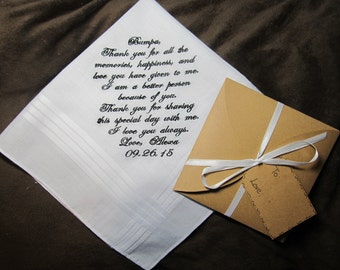 Bumpa,
Thank you for all the
memories, happiness, and
love you have given to me.
I am a better person
because of you.
Thank you for sharing
this special day with me.
I love you always.
Love, Alexa
09.26.15
To:
Love: